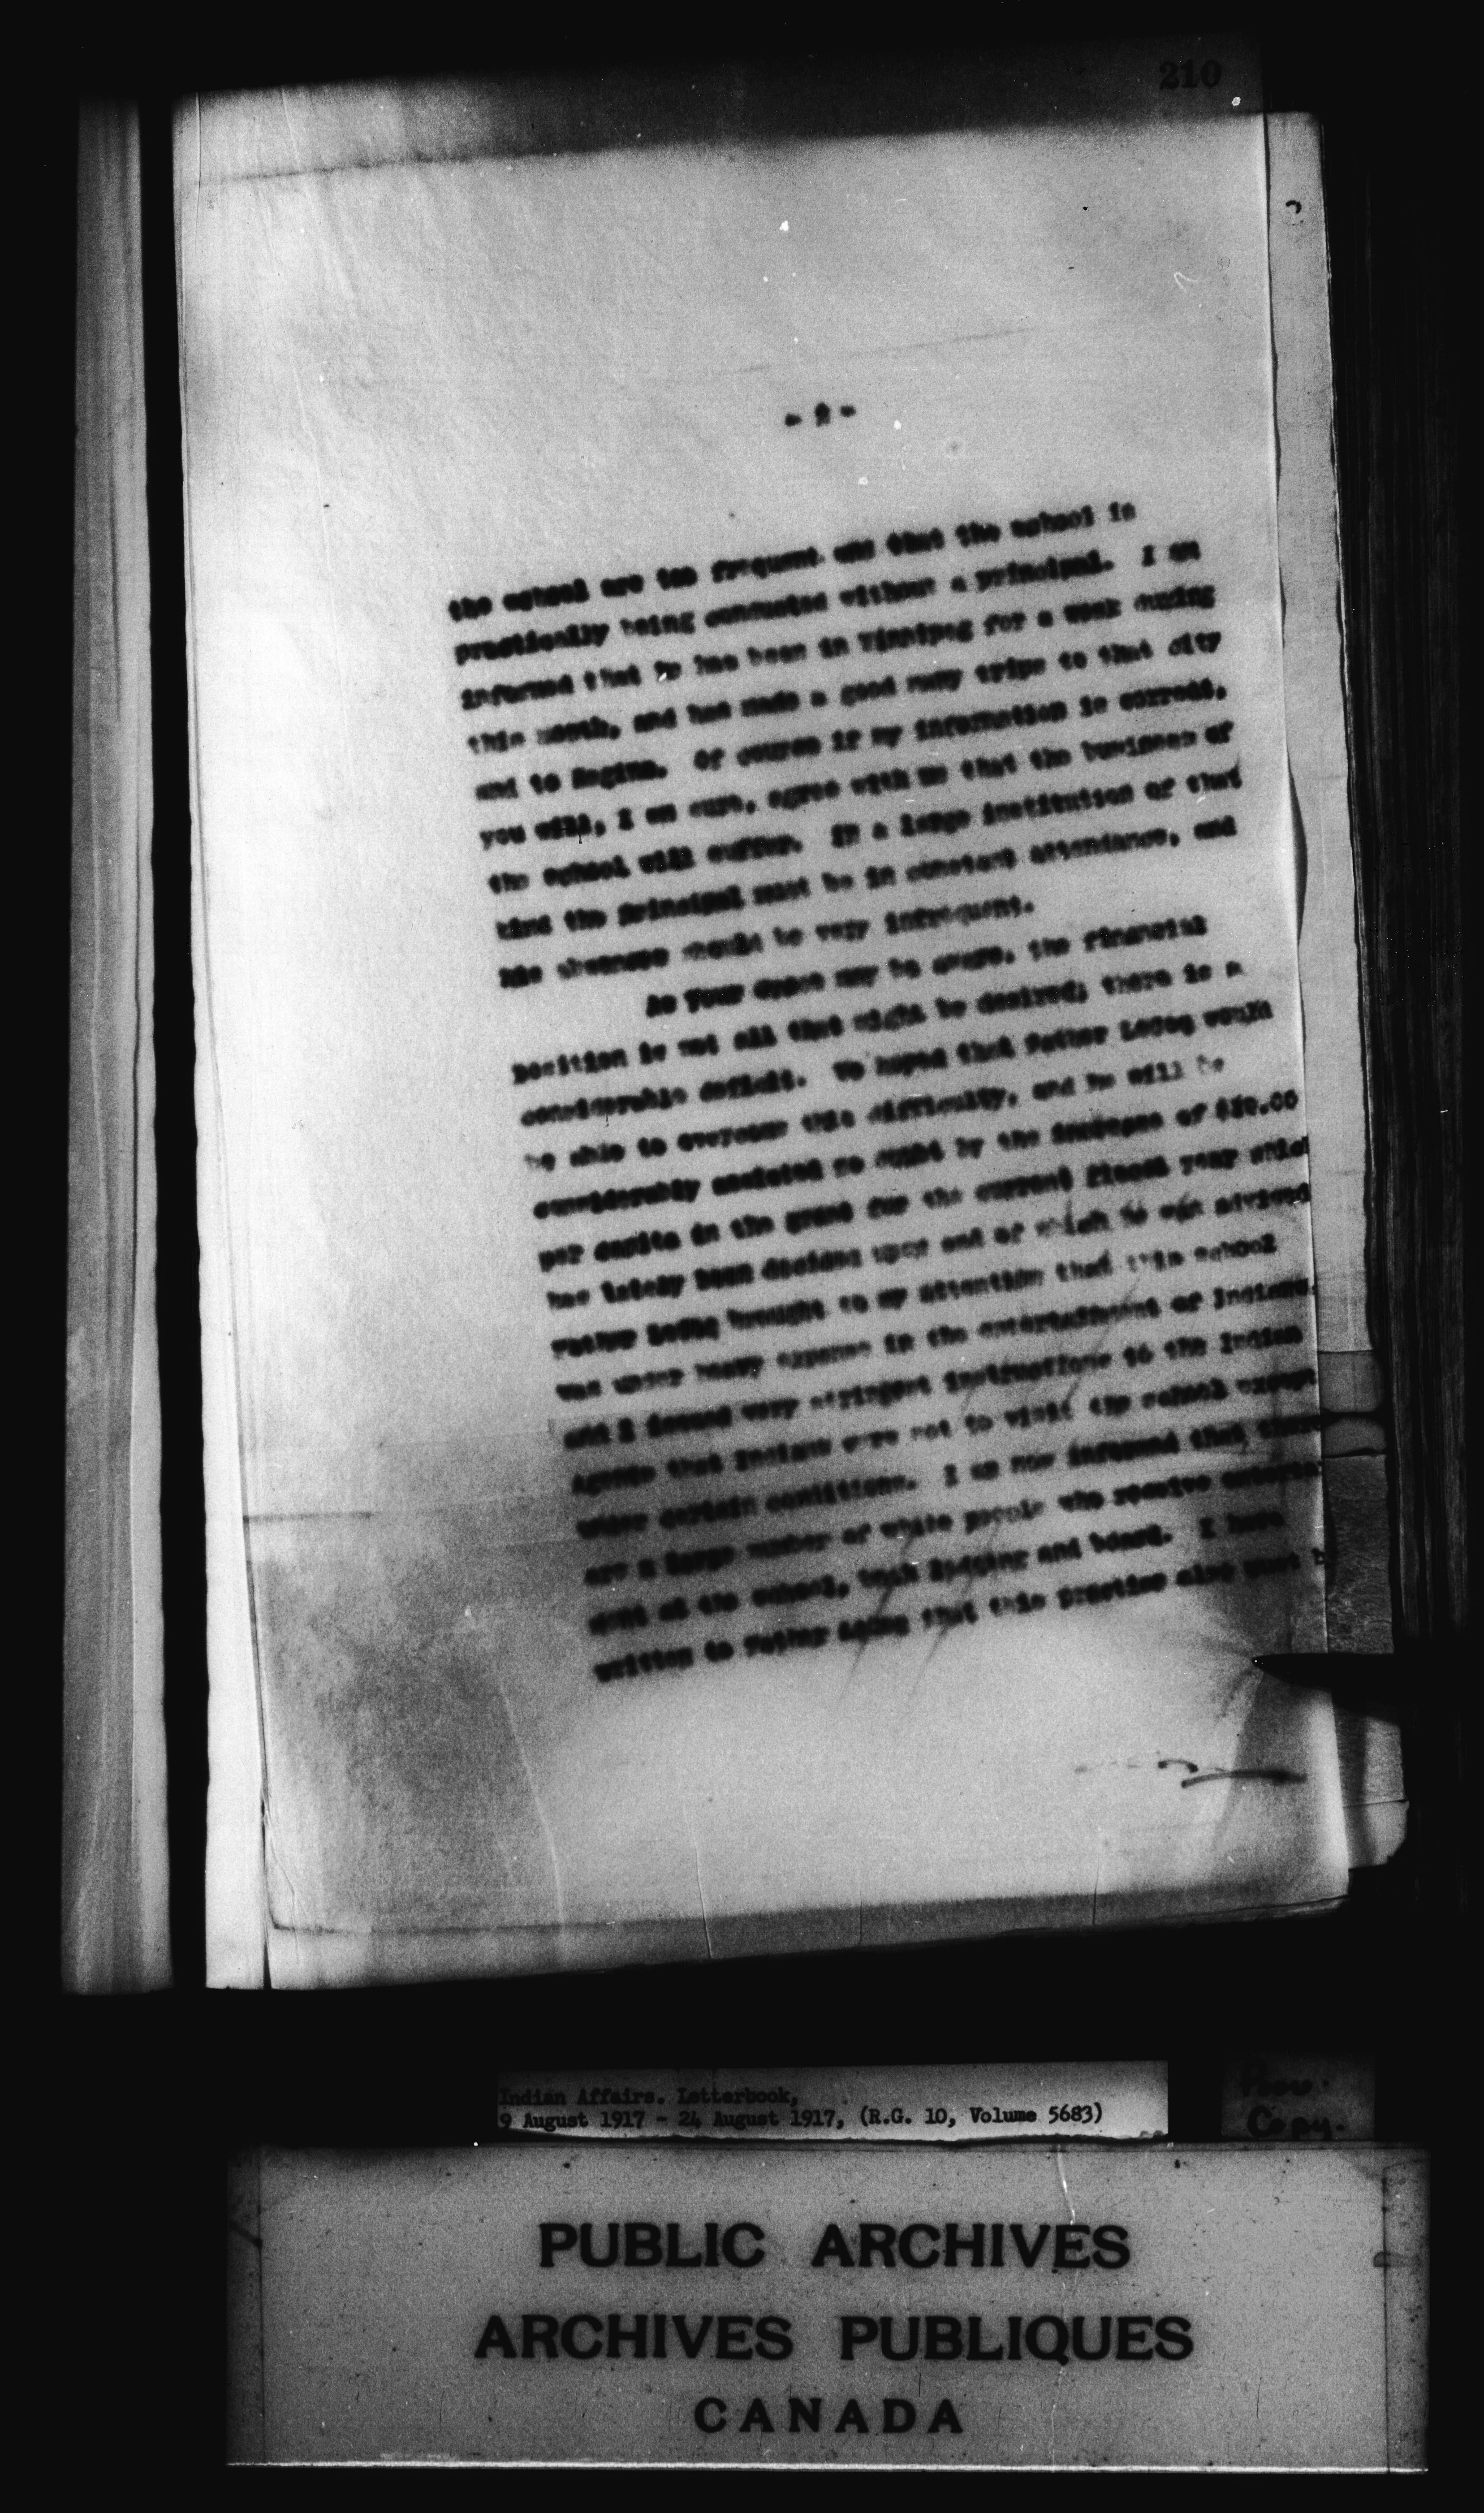 210
- 2 -
the school are too frequent and that the school is
practically being conducted without a principal. I am
informed that he has been in Winnipeg for a week during
this month, and has made a good many trips to that city
and to Regina. Of course if my information is correct,
you will, I am sure, agree with me that the business of
the school will suffer. In a large institution of that
kind the principal must be in constant attendance, and
his absences should be very infrequent.
As Your Grace may be aware, the financial
position is not all that might be desired; there is a
considerable deficit. We hoped that Father Leduq would
be able to overcome this difficulty, and he will be
considerably assisted no doubt by the increase of
per capita in the grant for the current fiscal year which
has lately been decided upon and of which he was advised
Father Leduq brought to my attention that this school
was under heavy expense in the entertainment of Indians,
and I issued very stringent instructions to the Indian
Agents that Indians were not to visit the school except
under certain conditions. I am now informed that there
are a large number of white people who receive enterta
ment at the school, both lodging and board. I have
written to Father Leduq that this practice also must b
Indian Affairs. Letterbook,
9 August 1917 - 24 August 1917, (R.G. 10, Volume 5683)
Poor
Copy.
PUBLIC ARCHIVES
ARCHIVES PUBLIQUES
CANADA